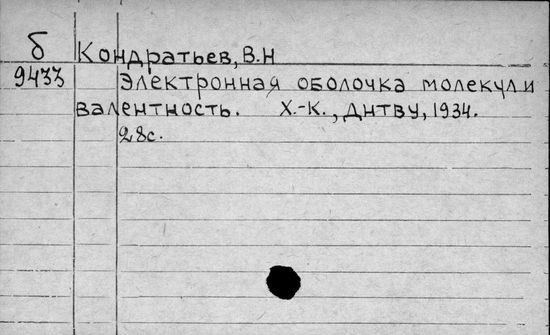 б
Кондратьев, В.Н
9433
Электронная оболочка молекул и
валентность. Х.-К., ДНТВУ, 1934.
28с.